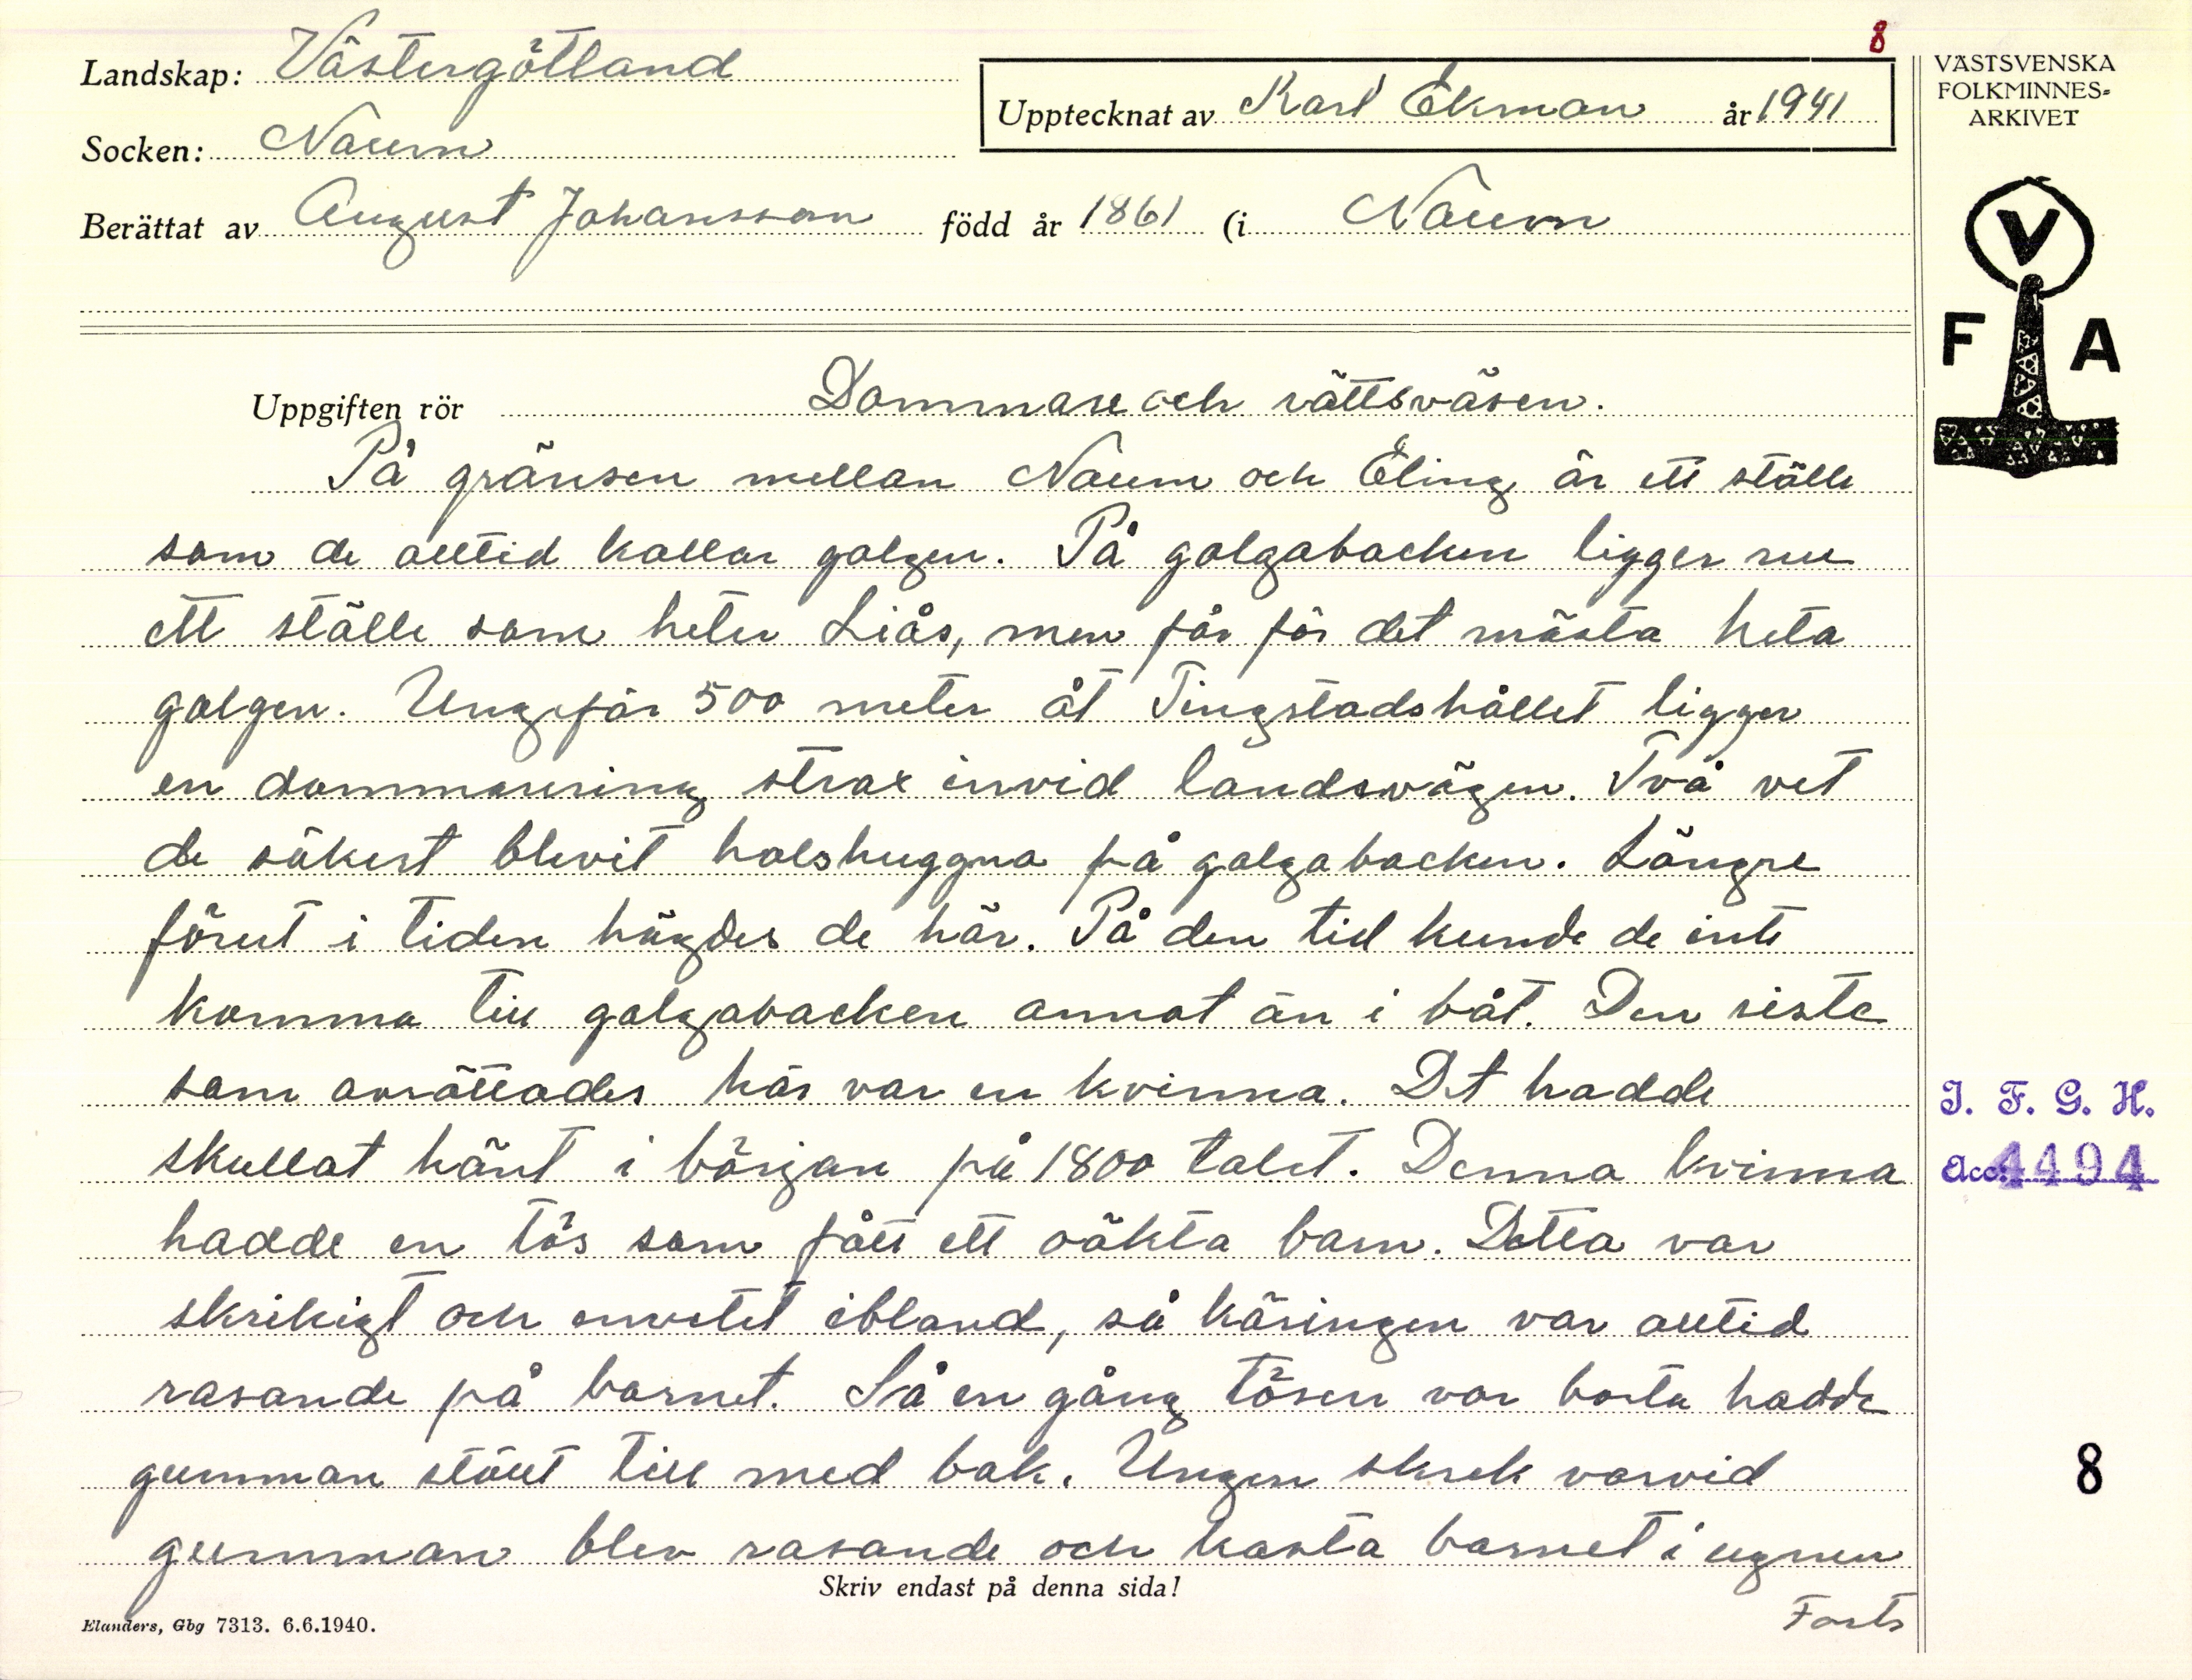 8
Landskap: Västergötland
Upptecknat av Karl Ekman år 1941
Socken: Naum
Berättat av August Johansson född år 1861 (i Naum
VÄSTSVENSKA
FOLKMINNES-
ARKIVET
V
F A
Uppgiften rör Dommare och rättsväsen.
På gränsen mellan Naum och Eling är ett ställe
som de alltid kallar galgen. På galgabacken ligger nu
ett ställe som heter Liås, men får för det mästa heta
galgen. Ungefär 500 meter åt Tingstadshållet ligger
en dommarering strax invid landsvägen. Två vet
de säkert blevit halshuggna på galgabacken. Längre
förut i tiden hägdes de här. På den tid kunde de inte
komma till galgabacken annat än i båt. Den siste
som avrättades här var en kvinna. Det hadde
skullat hänt i början på 1800 talet. Denna kvinna
hadde en tös som fått ett oäkta barn. Detta var
skrikigt och envetet ibland, så käringen var alltid
rasande på barnet. Så en gång tösen var borta hadde
gumman stöut till med bak. Ungen skrek varvid
gumman blev rasande och kasta barnet i ugnen
Forts
I. F. G. H.
Acc: 4494
8
Skriv endast på denna sida!
Elanders, Gbg 7313. 6.6.1940.